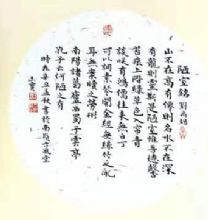 陋室銘 劉禹錫
山不在高有僊則名水不在深
有龍則靈斯是陋室惟吾德馨
苔痕上階綠草色入簾青
談笑有鴻儒往來無白丁
可以調素琴閱金經無絲竹之亂
耳無案牘之勞形
南陽諸葛廬西蜀子雲亭
孔子云何陋之有